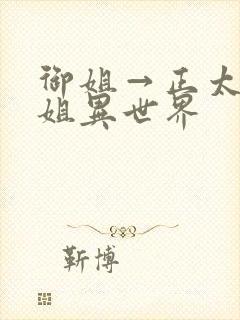 御姐→正太
姐異世界
靳博